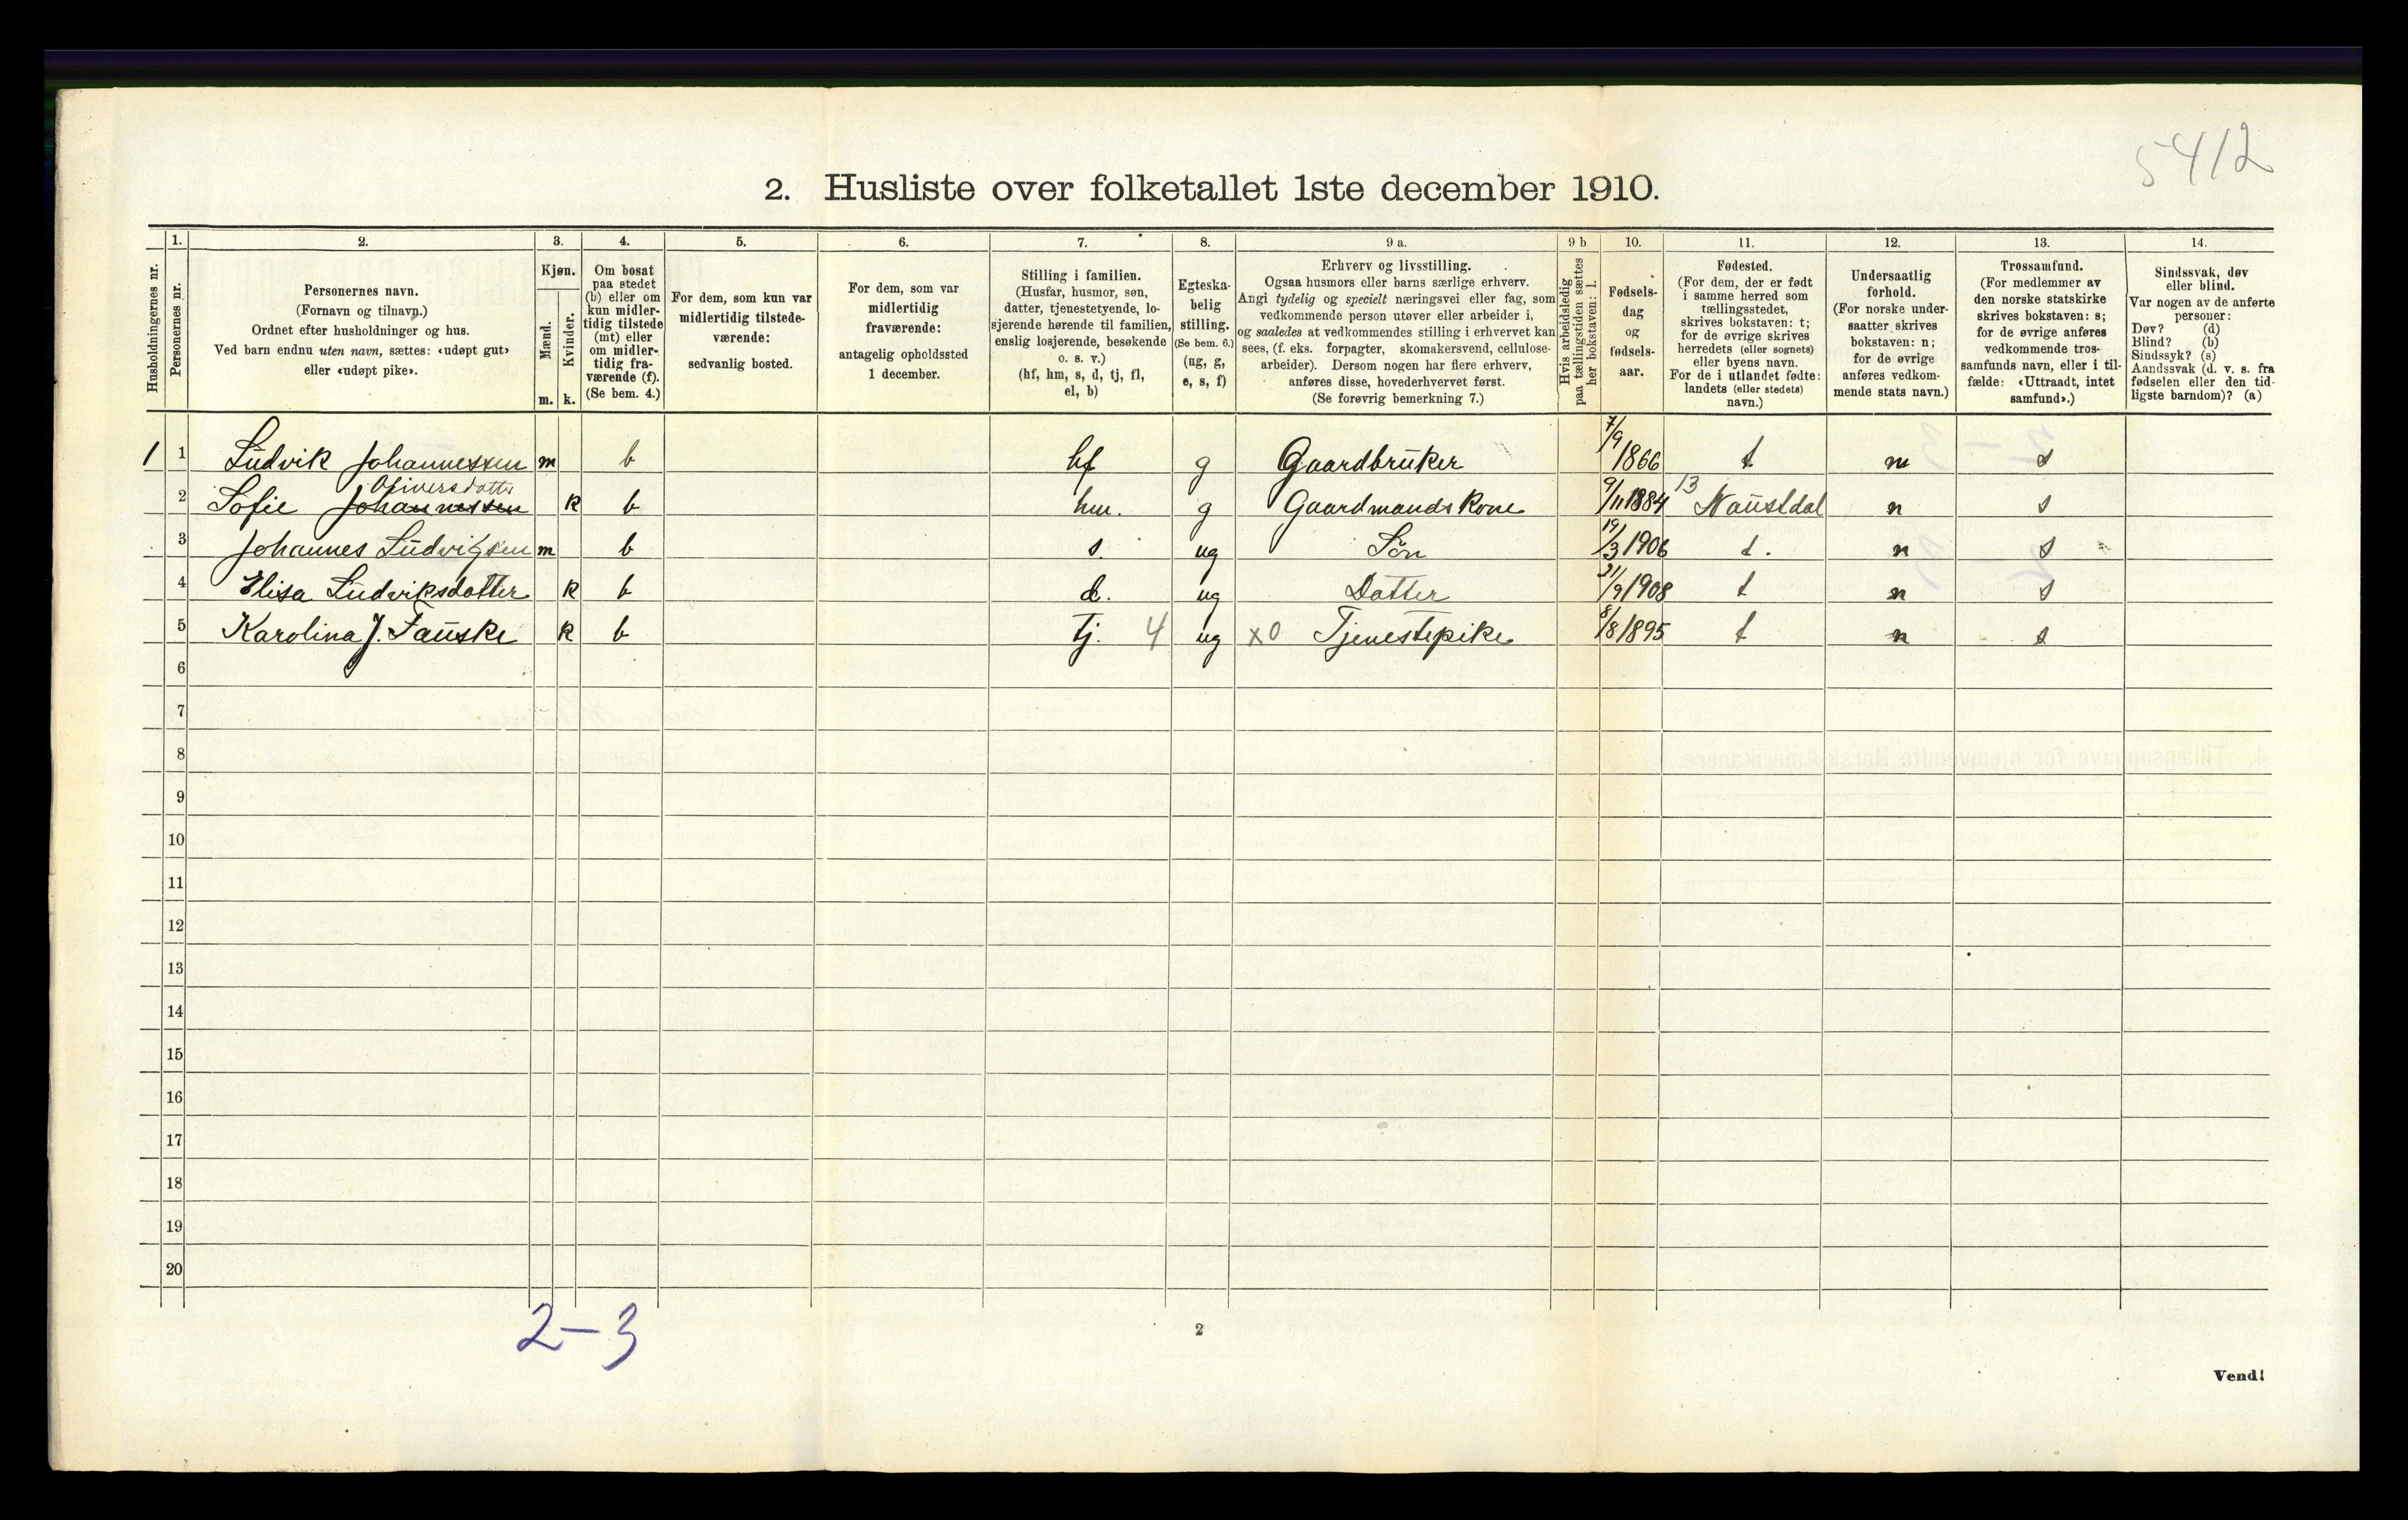 5412
2. Husliste over folketallet 1ste december 1910.
Husholdningernes nr.
1.
Personernes nr.
2.
Personernes navn.
(Fornavn og tilnavn.)
Ordnet efter husholdninger og hus.
Ved barn endnu uten navn, sættes: «udøpt gut»
eller «udøpt pike».
3.
Kjøn.
Mænd.
Kvinder.
m. k.
4.
Om bosat
paa stedet
(b) eller om
kun midler-
tidig tilstede
(mt) eller
om midler-
tidig fra-
værende (f).
(Se bem. 4.)
5.
For dem, som kun var
midlertidig tilstede-
værende:
sedvanlig bosted.
6.
For dem, som var
midlertidig
fraværende:
antagelig opholdssted
1 december.
7.
Stilling i familien.
(Husfar, husmor, søn,
datter, tjenestetyende, lo-
sjerende hørende til familien,
enslig losjerende, besøkende
o. s. v.)
(hf, hm, s, d, tj, fl,
el, b)
8.
Egteska-
belig
stilling.
(Se bem. 6.)
(ug, g,
e, s, f)
9 a.
Erhverv og livsstilling.
Ogsaa husmors eller barns særlige erhverv.
Angi tydelig og specielt næringsvei eller fag, som
vedkommende person utøver eller arbeider i,
og saaledes at vedkommendes stilling i erhvervet kan
sees, (f. eks. forpagter, skomakersvend, cellulose-
arbeider). Dersom nogen har flere erhverv,
anføres disse, hovederhvervet først.
(Se forøvrig bemerkning 7.)
9 b
Hvis arbeidsledig
paa tællingstiden sættes
her bokstaven: l.
10.
Fødsels-
dag
og
fødsels-
aar.
11.
Fødested.
(For dem, der er født
i samme herred som
tællingsstedet,
skrives bokstaven: t;
for de øvrige skrives
herredets (eller sognets)
eller byens navn.
For de i utlandet fødte:
landets (eller stedets)
navn.)
12.
Undersaatlig
forhold.
(For norske under-
saatter skrives
bokstaven: n;
for de øvrige
anføres vedkom-
mende stats navn.)
13.
Trossamfund.
(For medlemmer av
den norske statskirke
skrives bokstaven: s;
for de øvrige anføres
vedkommende tros-
samfunds navn, eller i til-
fælde: «Uttraadt, intet
samfund».)
14.
Sindssvak, døv
eller blind.
Var nogen av de anførte
personer:
Døv? (d)
Blind? (b)
Sindssyk? (s)
Aandssvak (d. v. s. fra
fødselen eller den tid-
ligste barndom)? (a)
1 1 Ludvik Johannessen m b hf g Gaardbruker 7/9 1866 t n s
Oliversdatter
2 Sofie Johannessen k b hm. g Gaardmandskone 9/11 1884 13 Naustdal n s
3 Johannes Ludvigsen m b s. ug Søn 19/3 1906 t. n s
4 Elisa Ludviksdatter k b d. ug Datter 21/9 1908 t n s
5 Karolina J. Fauske k b tj. 4 ug x0 Tjenestepike 8/8 1895 t n s
6
7
8
9
10
11
12
13
14
15
16
17
18
19
20
2-3
2
Vend!